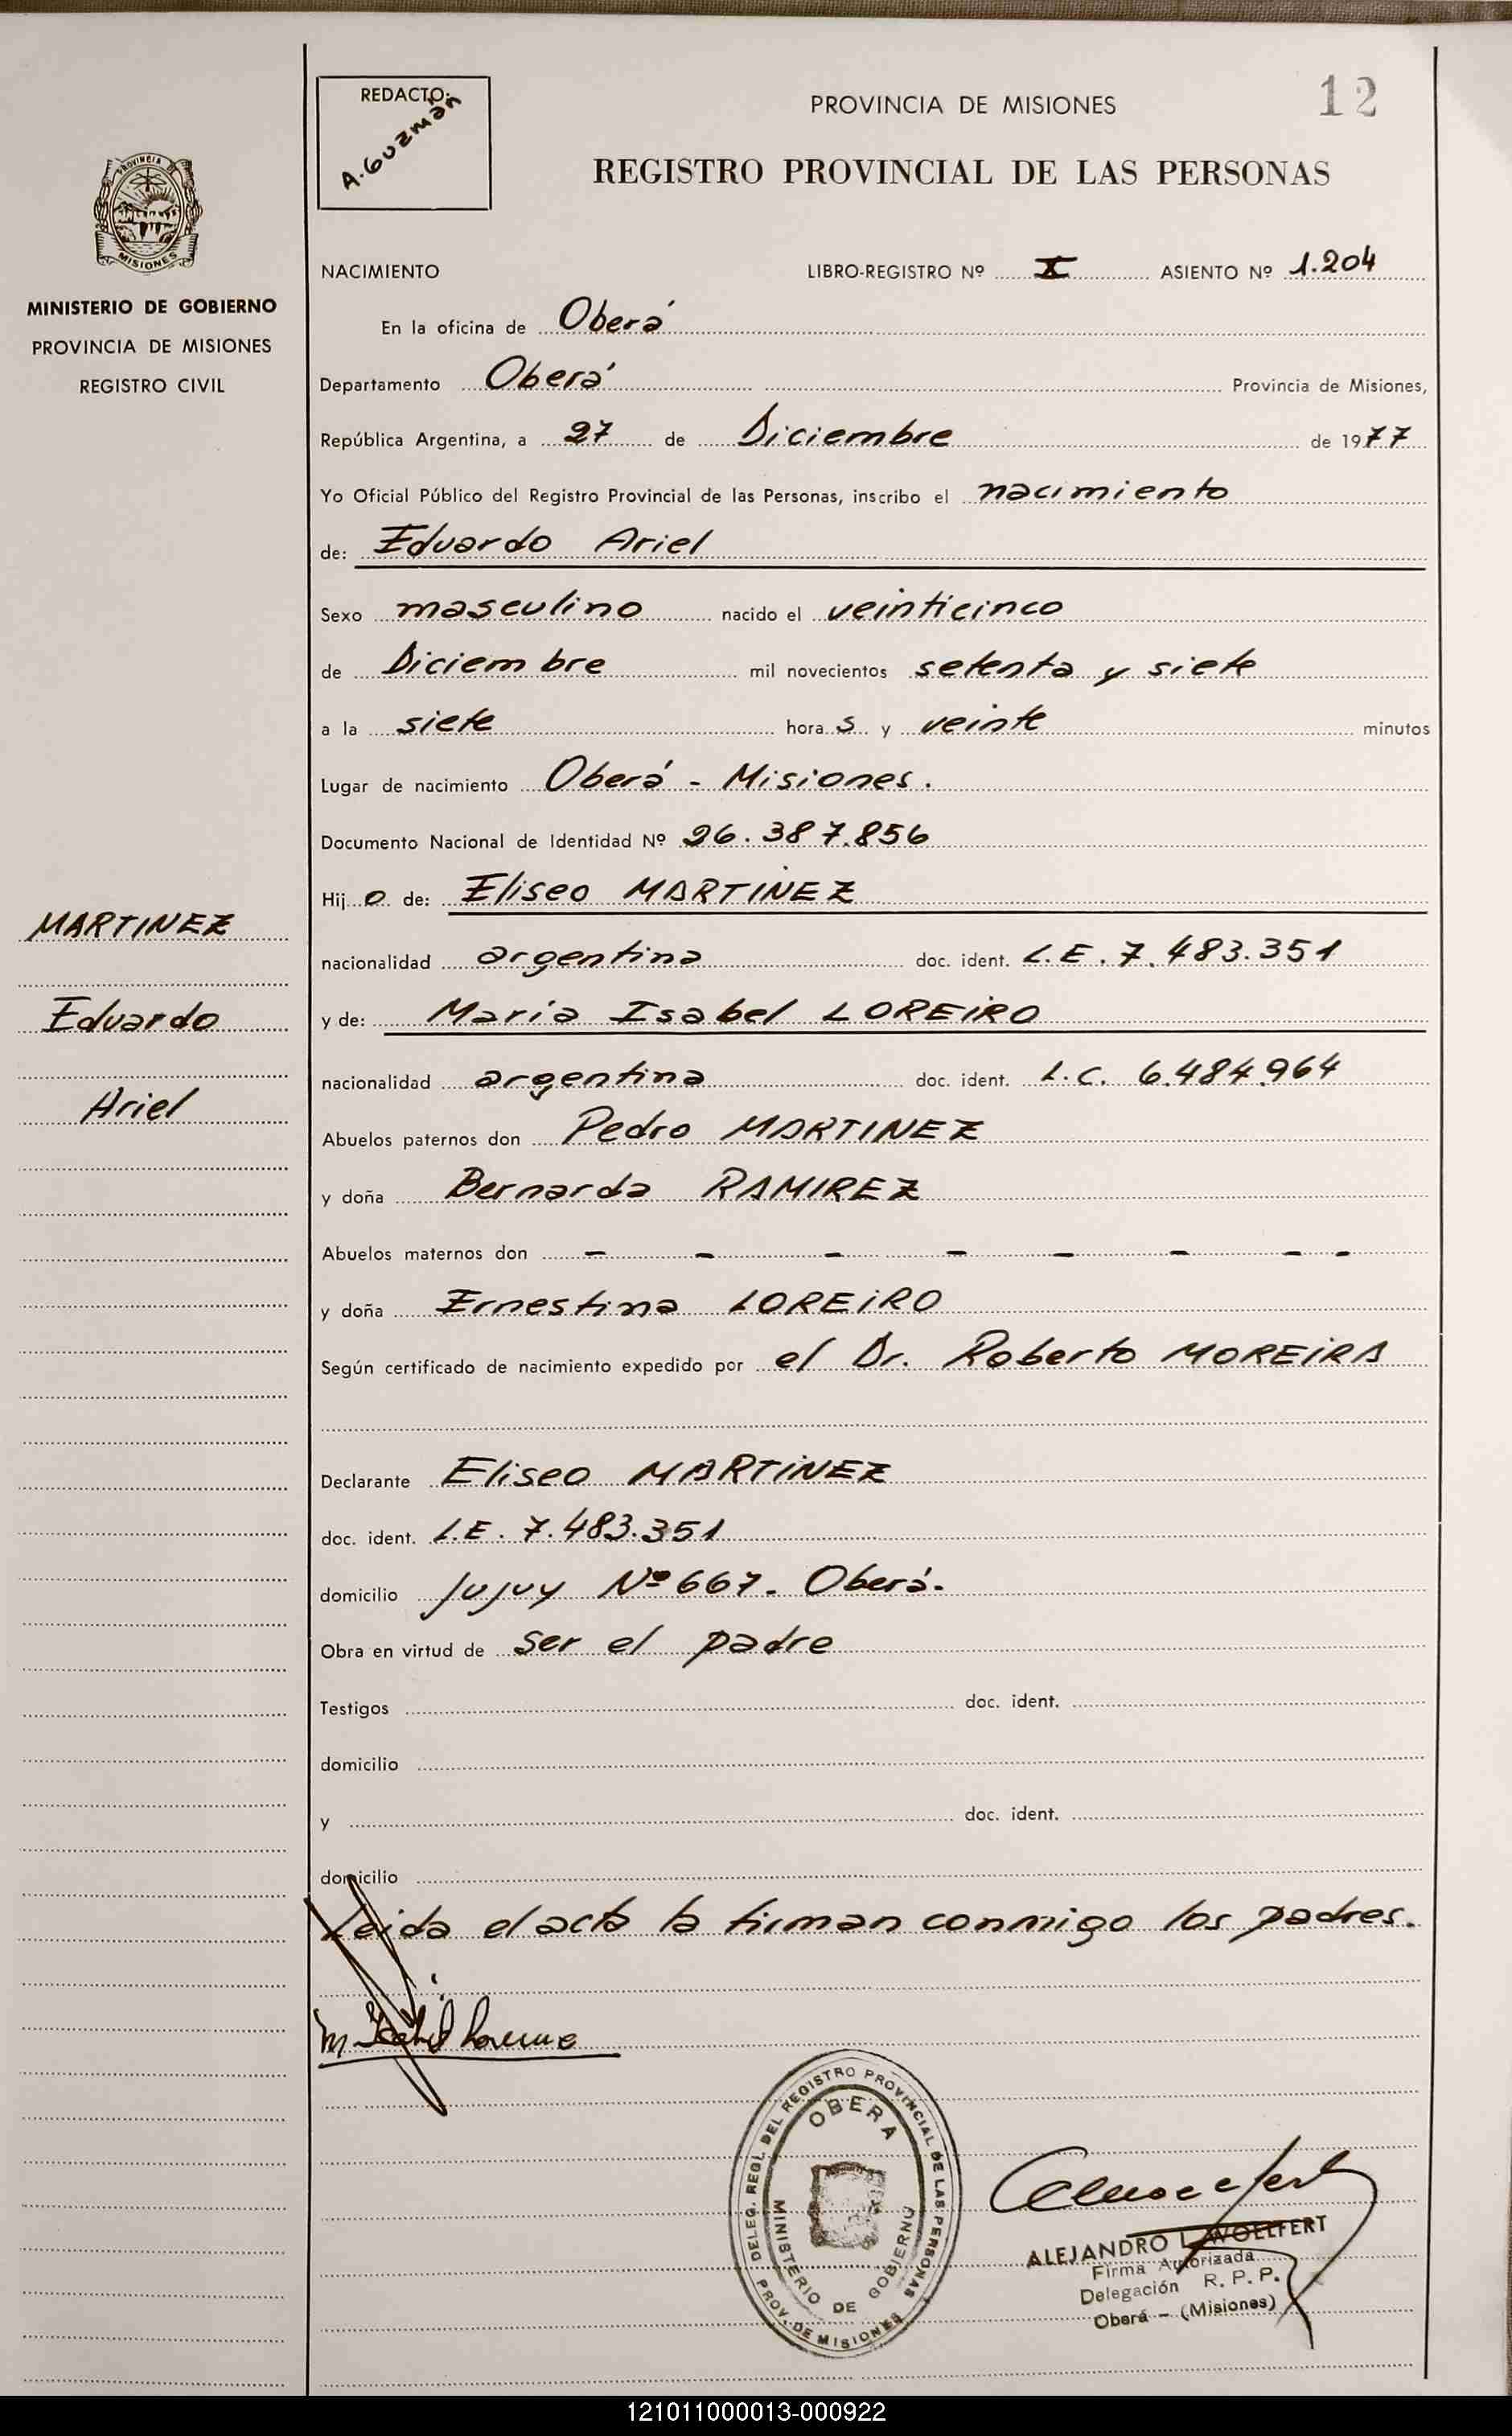 REDACTO:
A. Guzmán
PROVINCIA DE MISIONES
12
REGISTRO PROVINCIAL DE LAS PERSONAS
PROVINCIA DE
MISIONES
MINISTERIO DE GOBIERNO
PROVINCIA DE MISIONES
REGISTRO CIVIL
NACIMIENTO LIBRO-REGISTRO Nº X ASIENTO Nº 1.204
En la oficina de Oberá
Departamento Oberá Provincia de Misiones,
República Argentina, a 27 de Diciembre de 1977
Yo Oficial Público del Registro Provincial de las Personas, inscribo el nacimiento
de: Eduardo Ariel
Sexo masculino nacido el veinticinco
de Diciembre mil novecientos setenta y siete
a la siete hora s y veinte minutos
Lugar de nacimiento Oberá - Misiones.
Documento Nacional de Identidad Nº 26.387.856
Hij o de: Eliseo MARTINEZ
MARTINEZ
nacionalidad argentina doc. ident. L.E. 7.483.351
Eduardo
y de: María Isabel LOREIRO
nacionalidad argentina doc. ident. L.C. 6.484.964
Ariel
Abuelos paternos don Pedro MARTINEZ
y doña Bernarda RAMIREZ
Abuelos maternos don - - - - - - - -
y doña Ernestina LOREIRO
Según certificado de nacimiento expedido por el Dr. Roberto MOREIRA
Declarante Eliseo MARTINEZ
doc. ident. L.E. 7.483.351
domicilio Jujuy Nº 667. Oberá.
Obra en virtud de ser el padre
Testigos doc. ident.
domicilio
y doc. ident.
domicilio
Leida el acta la firman conmigo los padres.
M Isabel Loreiro
DELEG. REGL. DEL REGISTRO PROVINCIAL DE LAS PERSONAS
PROV. DE MISIONES
OBERA
MINISTERIO DE GOBIERNO
ALEJANDRO L. WOELFERT
Firma Autorizada
Delegación R. P. P.
Oberá - (Misiones)
121011000013-000922